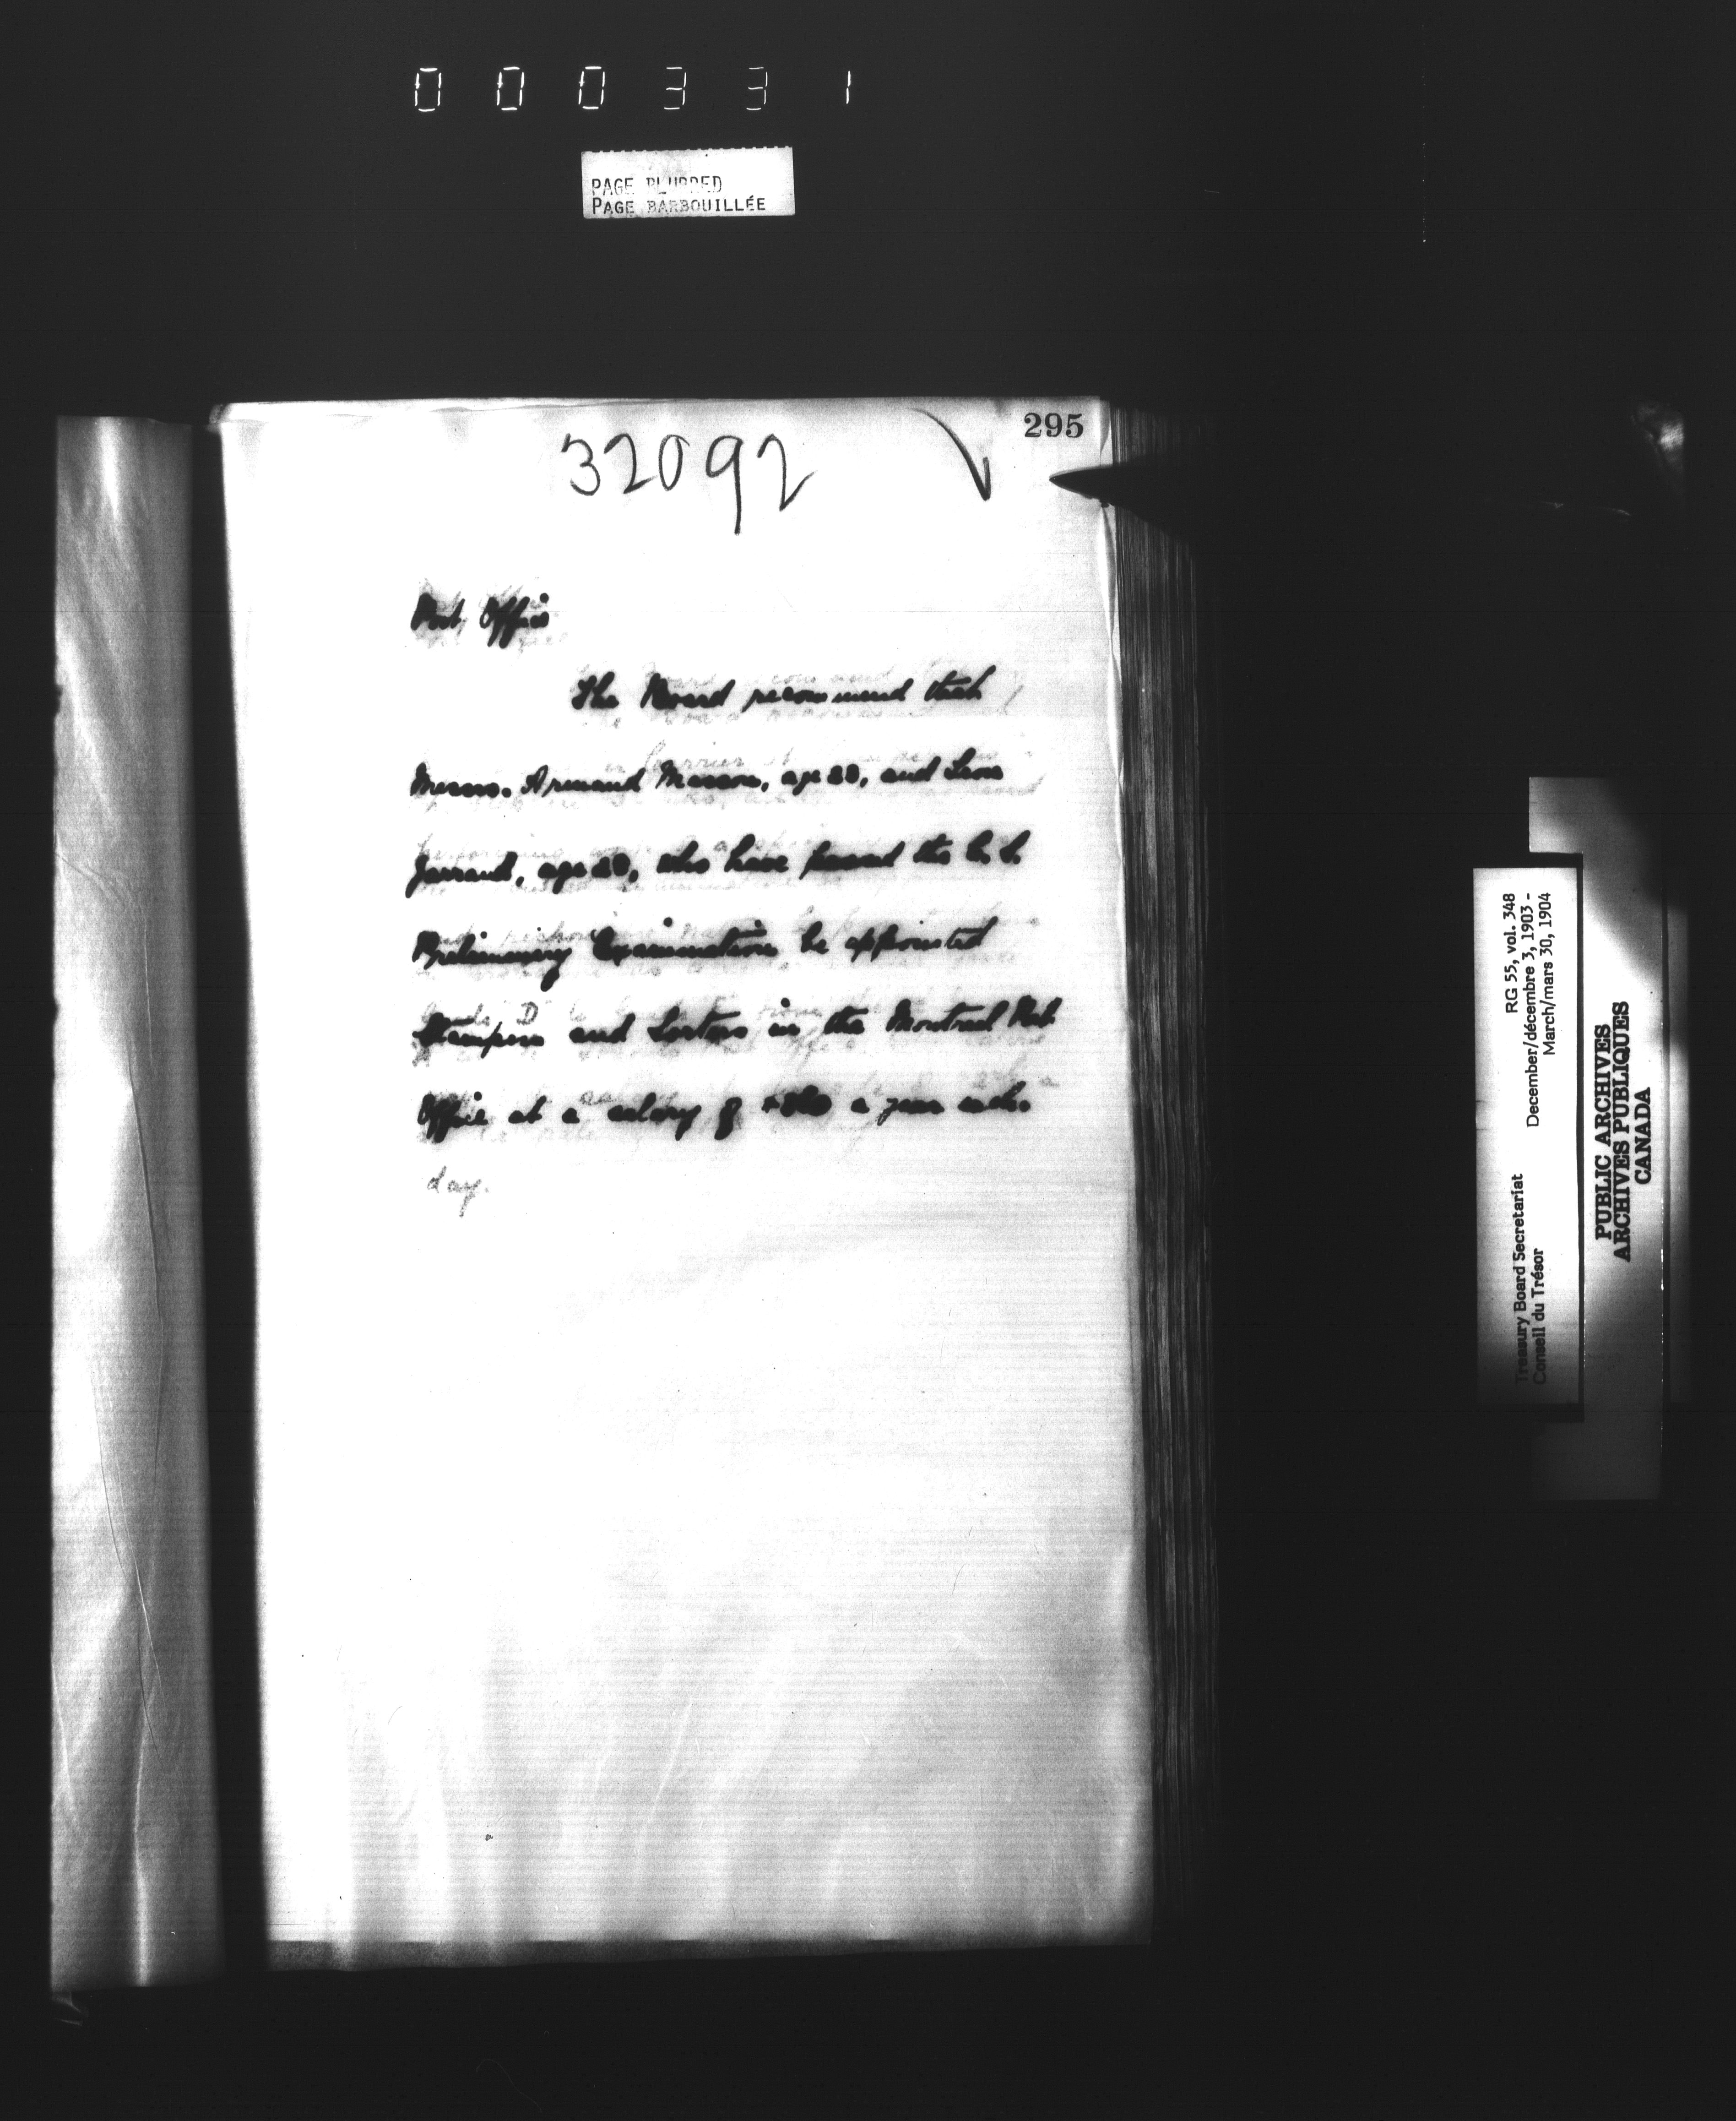 000331
PAGE BLURRED
PAGE BARBOUILLÉE
295
32092
Post Office
The Board recommend that
Messrs. Armand Masson, age 28, and
age 20, who have passed the C. S.
Preliminary Examination be appointed
Stampers and Sorters in the Montreal Post
Office at a salary of a year each.
day.
Treasury Board Secretariat RG 55, vol. 348
Conseil du Trésor December/décembre 3, 1903 -
March/mars 30, 1904
PUBLIC ARCHIVES
ARCHIVES PUBLIQUES
CANADA